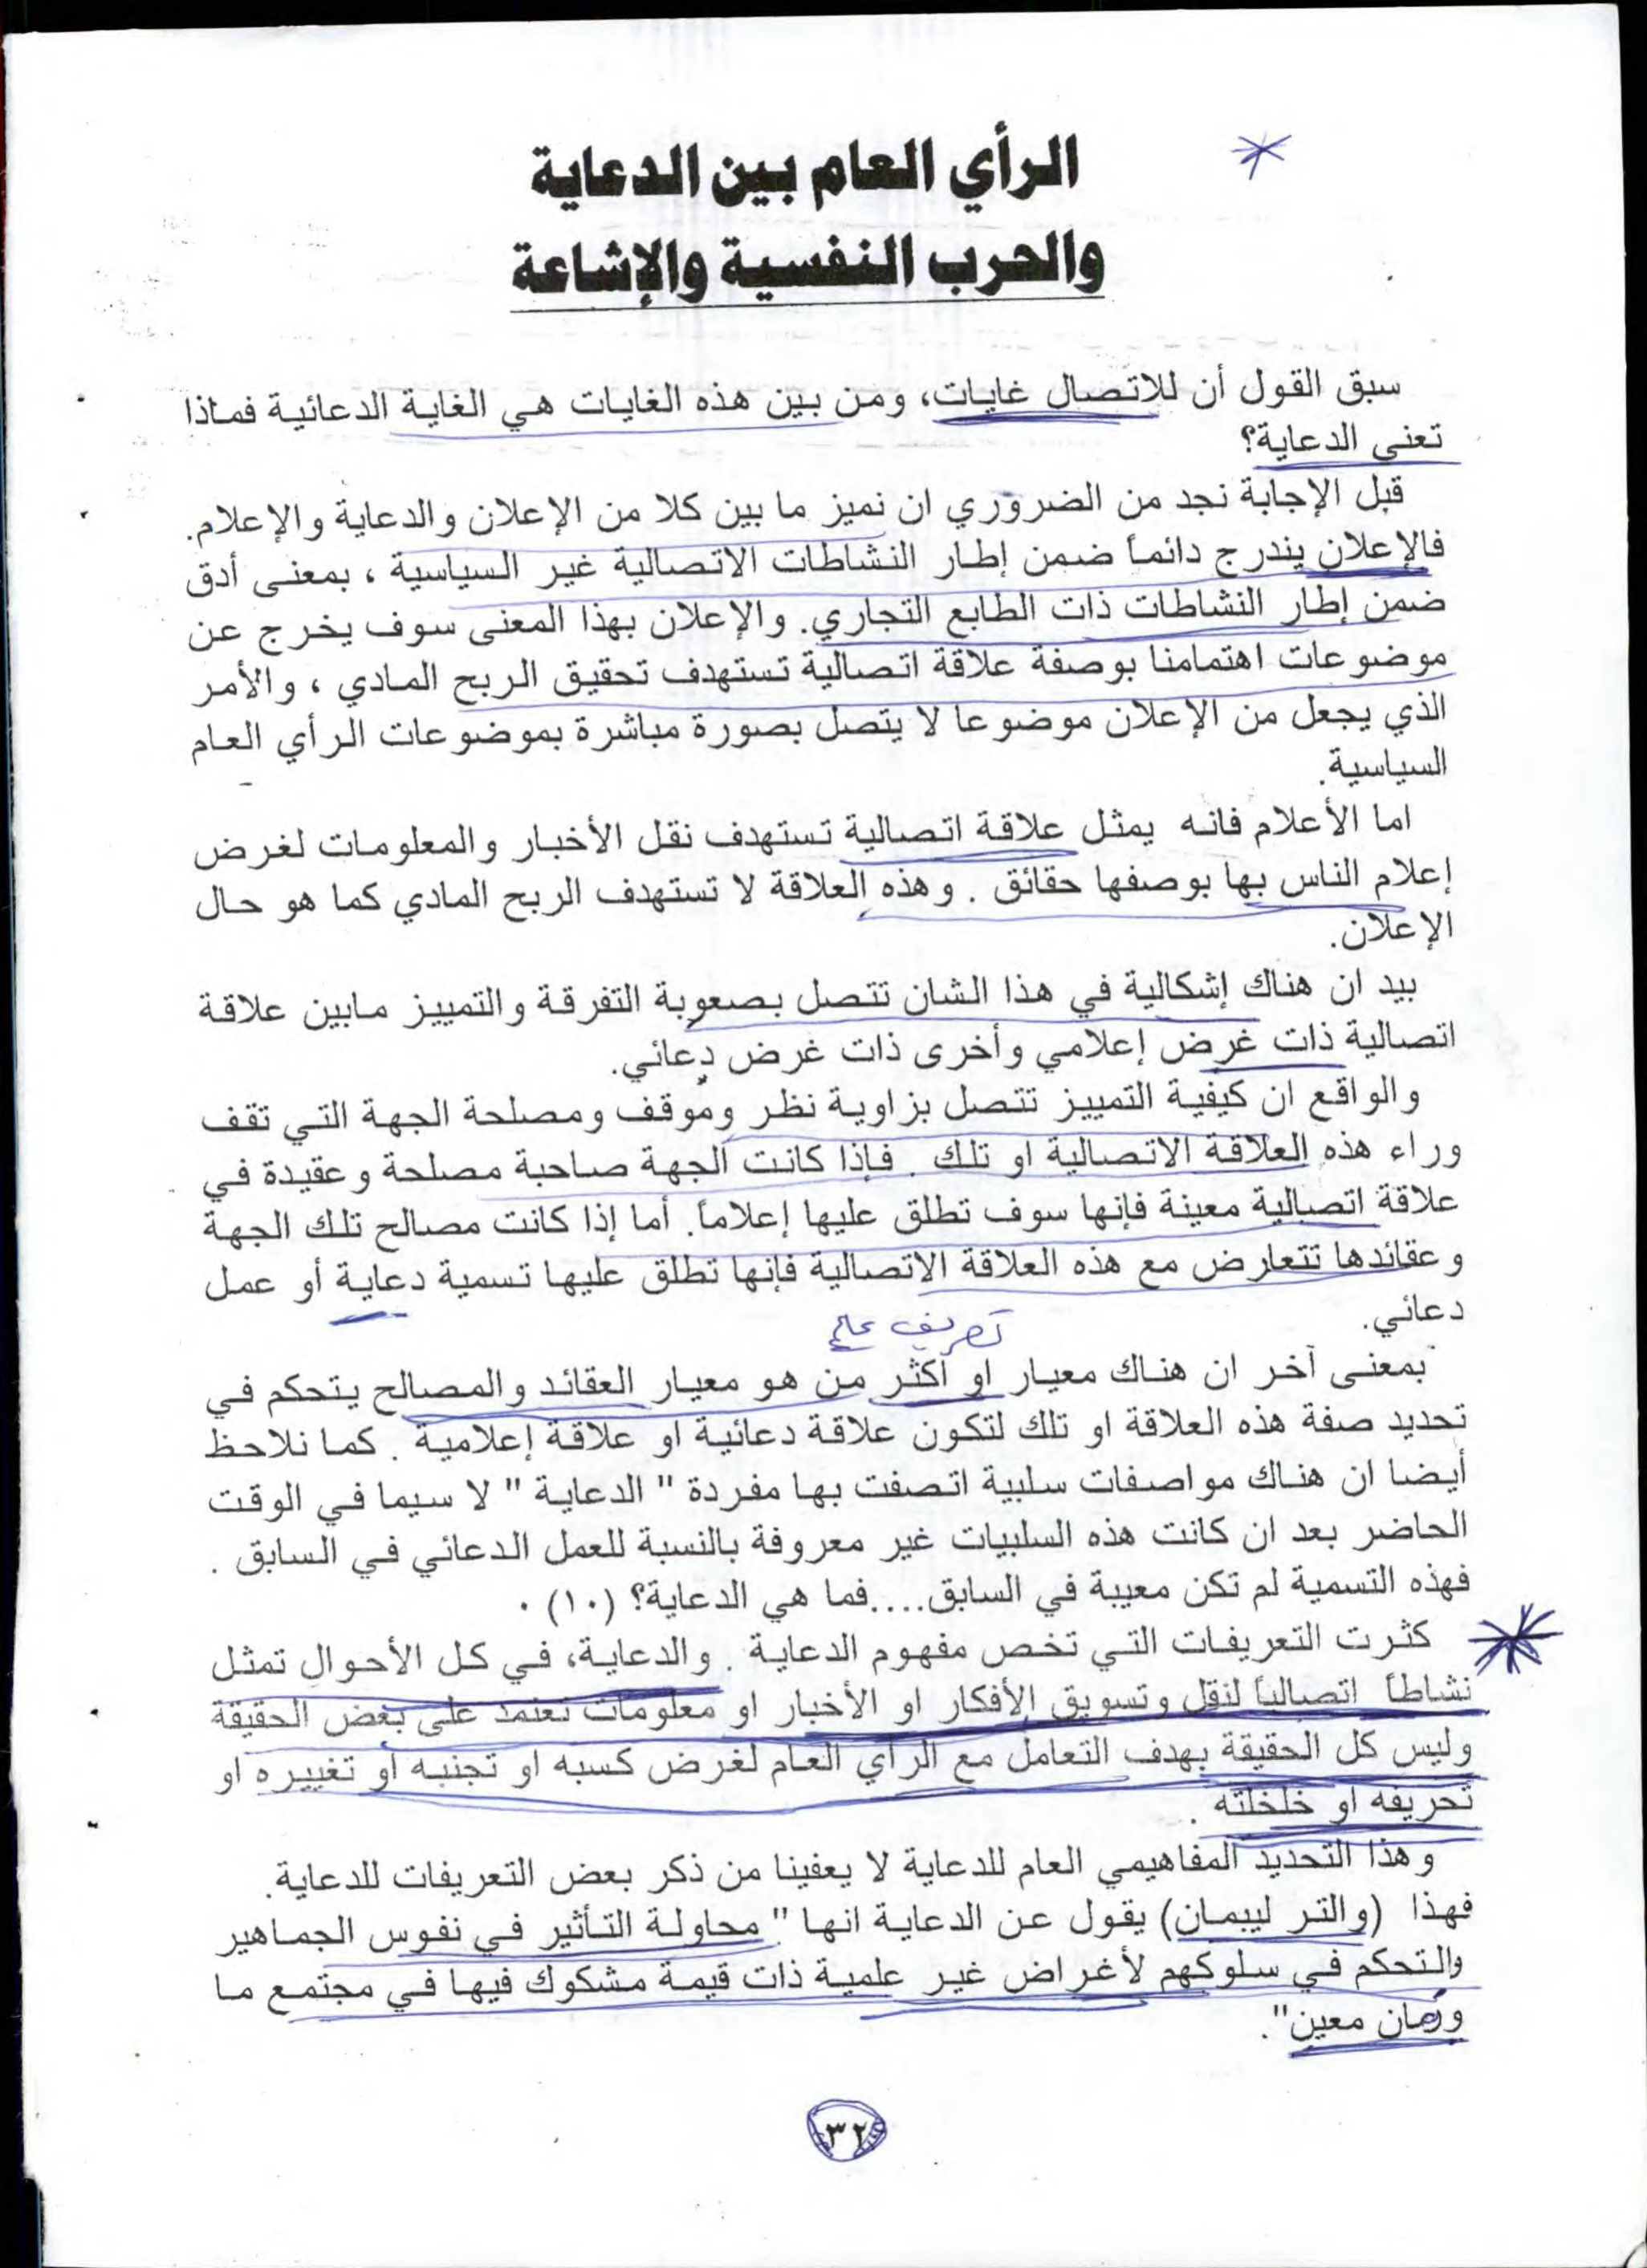 الرأي العام بين الدعاية
والحرب النفسية والإشاعة
سبق القول أن للاتصال غايات، ومن بين هذه الغايات هي الغاية الدعائية فماذا
تعني الدعاية؟
قبل الإجابة نجد من الضروري ان نميز ما بين كلا من الإعلان والدعاية والإعلام.
فالإعلان يندرج دائماً ضمن إطار النشاطات الاتصالية غير السياسية ، بمعنى أدق
ضمن إطار النشاطات ذات الطابع التجاري. والإعلان بهذا المعنى سوف يخرج عن
موضوعات اهتمامنا بوصفة علاقة اتصالية تستهدف تحقيق الربح المادي ، والأمر
الذي يجعل من الإعلان موضوعا لا يتصل بصورة مباشرة بموضوعات الرأي العام
السياسية.
اما الأعلام فانه يمثل علاقة اتصالية تستهدف نقل الأخبار والمعلومات لغرض
إعلام الناس بها بوصفها حقائق . وهذه العلاقة لا تستهدف الربح المادي كما هو حال
الإعلان.
بيد ان هناك إشكالية في هذا الشان تتصل بصعوبة التفرقة والتمييز مابين علاقة
اتصالية ذات غرض إعلامي وأخرى ذات غرض دعائي.
والواقع ان كيفية التمييز تتصل بزاوية نظر وموقف ومصلحة الجهة التي تقف
وراء هذه العلاقة الاتصالية او تلك . فإذا كانت الجهة صاحبة مصلحة وعقيدة في
علاقة اتصالية معينة فإنها سوف تطلق عليها إعلاماً. أما إذا كانت مصالح تلك الجهة
وعقائدها تتعارض مع هذه العلاقة الاتصالية فإنها تطلق عليها تسمية دعاية أو عمل
دعائي.
تعريف عام
بمعنى آخر ان هناك معيار او أكثر من هو معيار العقائد والمصالح يتحكم في
تحديد صفة هذه العلاقة او تلك لتكون علاقة دعائية او علاقة إعلامية . كما نلاحظ
أيضا ان هناك مواصفات سلبية اتصفت بها مفردة " الدعاية " لا سيما في الوقت
الحاضر بعد ان كانت هذه السلبيات غير معروفة بالنسبة للعمل الدعائي في السابق .
فهذه التسمية لم تكن معيبة في السابق....فما هي الدعاية؟ (١٠) ٠
كثرت التعريفات التي تخص مفهوم الدعاية . والدعاية، في كل الأحوال تمثل
نشاطاً اتصالياً لنقل وتسويق الأفكار او الأخبار او معلومات تعتمد على بعض الحقيقة
وليس كل الحقيقة بهدف التعامل مع الرأي العام لغرض كسبه او تجنبه أو تغييره او
تحريفه او خلخلته .
وهذا التحديد المفاهيمي العام للدعاية لا يعفينا من ذكر بعض التعريفات للدعاية.
فهذا (والتر ليبمان) يقول عن الدعاية انها " محاولة التأثير في نفوس الجماهير
والتحكم في سلوكهم لأغراض غير علمية ذات قيمة مشكوك فيها في مجتمع ما
وزمان معين".
٣٢